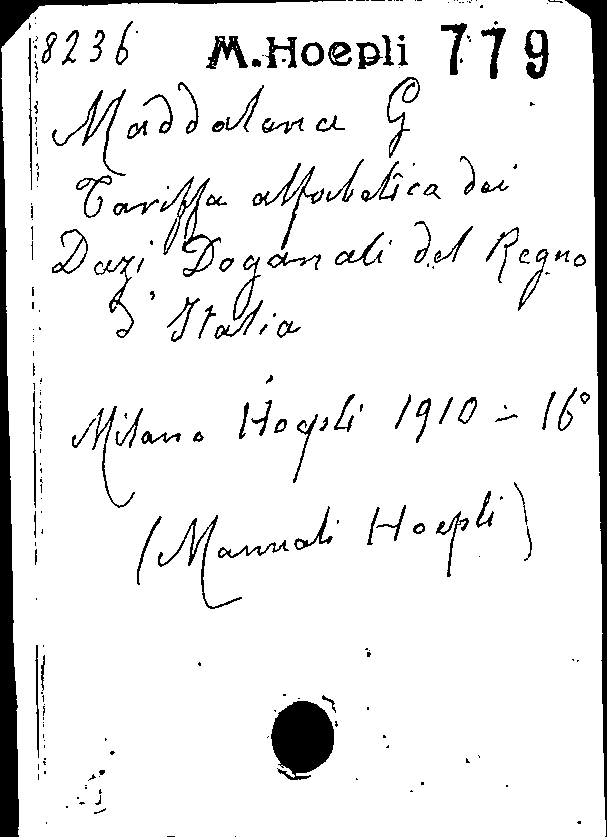 8236 M. Hoepli 779
Maddalena G
Tariffa alfabetica dei
Dazi Doganali del Regno
d'Italia
Milano Hoepli 1910 - 16°
(Manuali Hoepli)